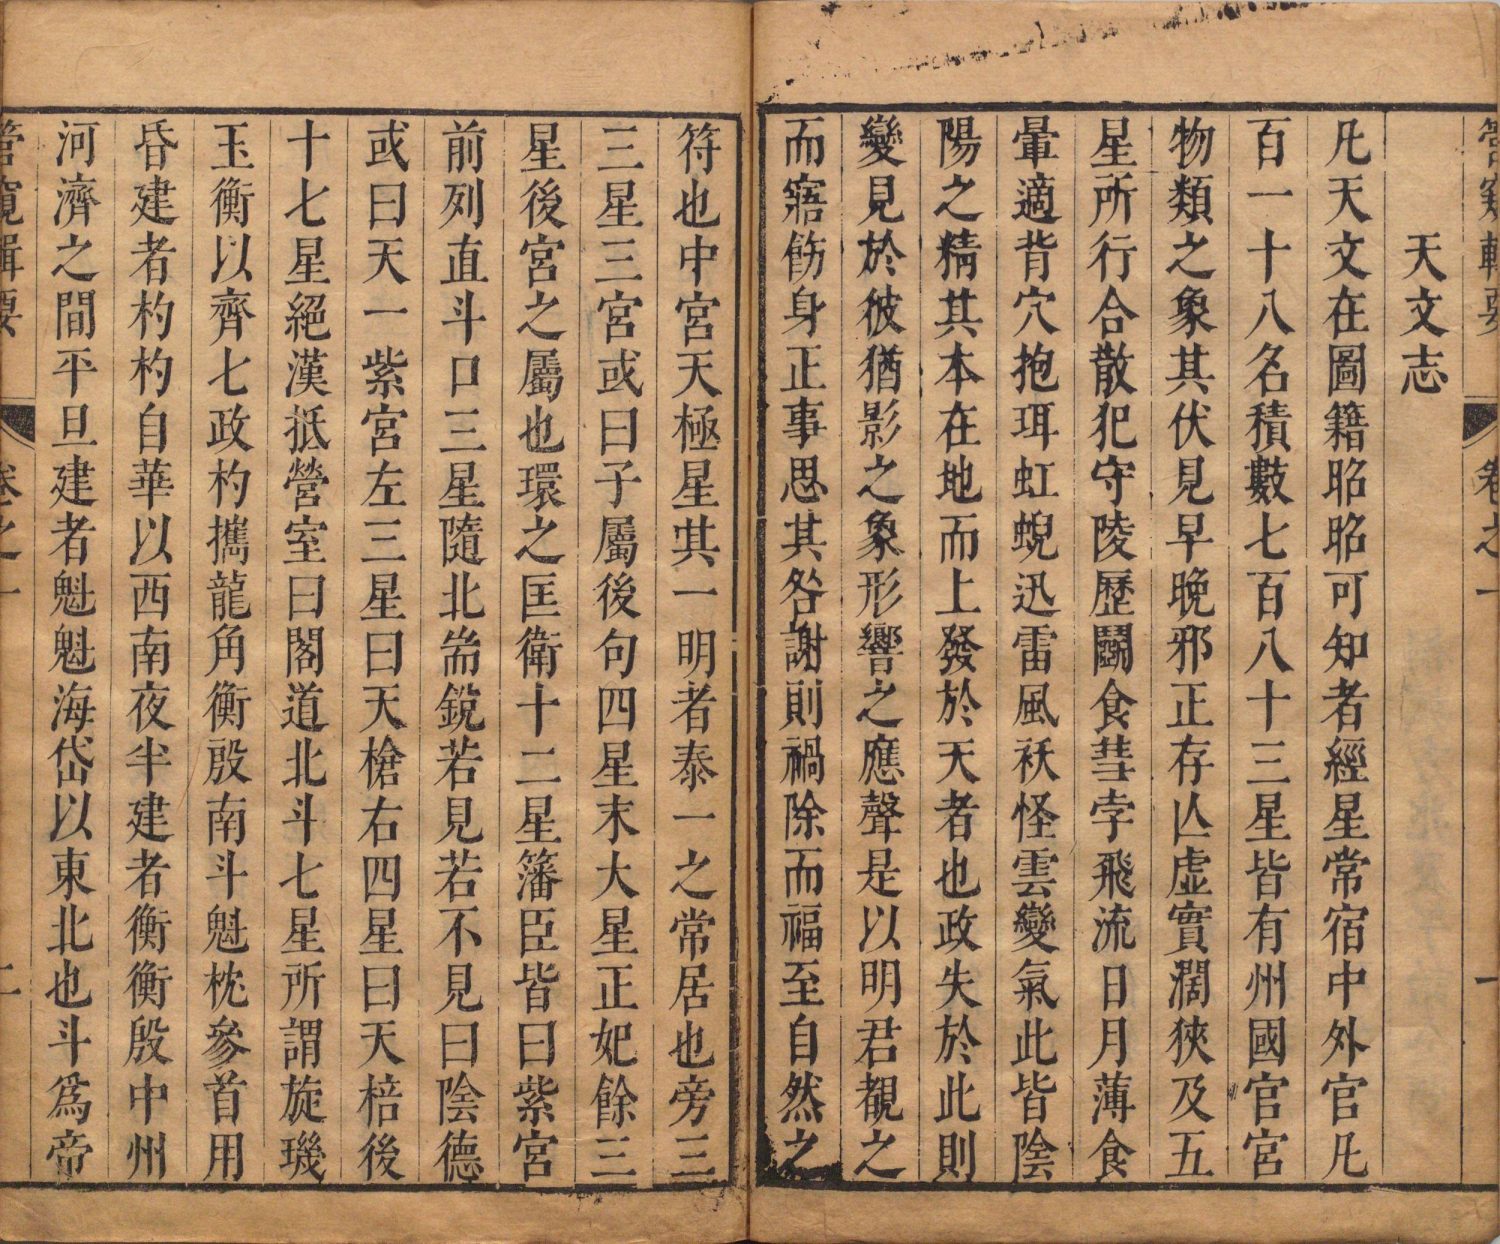 天文志
凡天文在圖籍昭昭可知者經星常宿中外官凡
百一十八名積數七百八十三星皆有州國官宮
物類之象其伏見早晚邪正存亾虛實濶狹及五
星所行合散犯守陵歷鬭食彗孛飛流日月薄食
暈適背穴抱珥虹蜺迅雷風祅怪雲變氣此皆陰
陽之精其本在地而上發於天者也政失於此則
變見於彼猶影之象形響之應聲是以明君覩之
而寤飭身正事思其咎謝則禍除而福至自然之
符也中宮天極星其一明者泰一之常居也旁三
三星三宮或曰子屬後句四星末大星正妃餘三
星後宮之屬也環之匡衛十二星籓臣皆曰紫宮
前列直斗口三星隨北耑銳若見若不見曰陰德
或曰天一紫宮左三星曰天槍右四星曰天棓後
十七星絕漢抵營室曰閣道北斗七星所謂旋璣
玉衡以齊七政杓攜龍角衡殷南斗魁枕參首用
昏建者杓杓自華以西南夜半建者衡衡殷中州
河濟之間平旦建者魁魁海岱以東北也斗爲帝
管窺輯要
卷之一
二